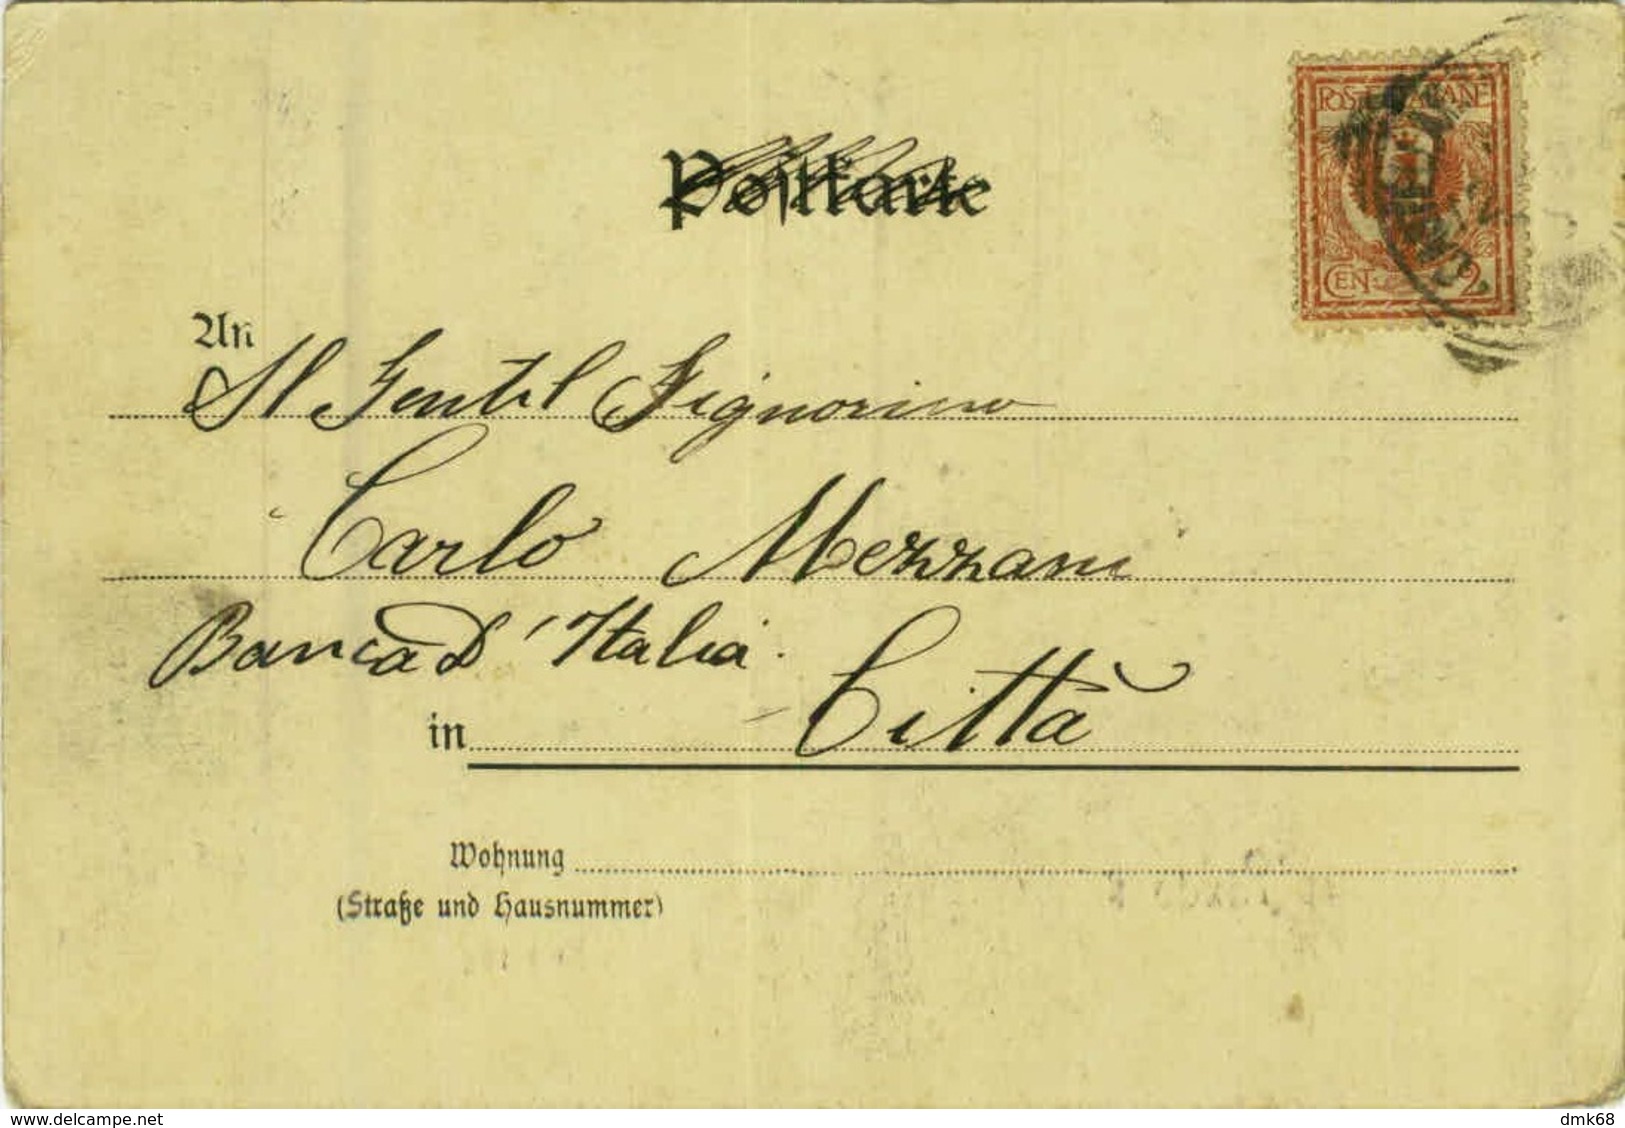 Postkarte
POSTE ITALIANE
CEN. 2
An
Al Gentil Signorino
Carlo Mezzani
Banca D'Italia.
in Città
Wohnung
(Straße und Hausnummer)
delcampe.net
dmk68